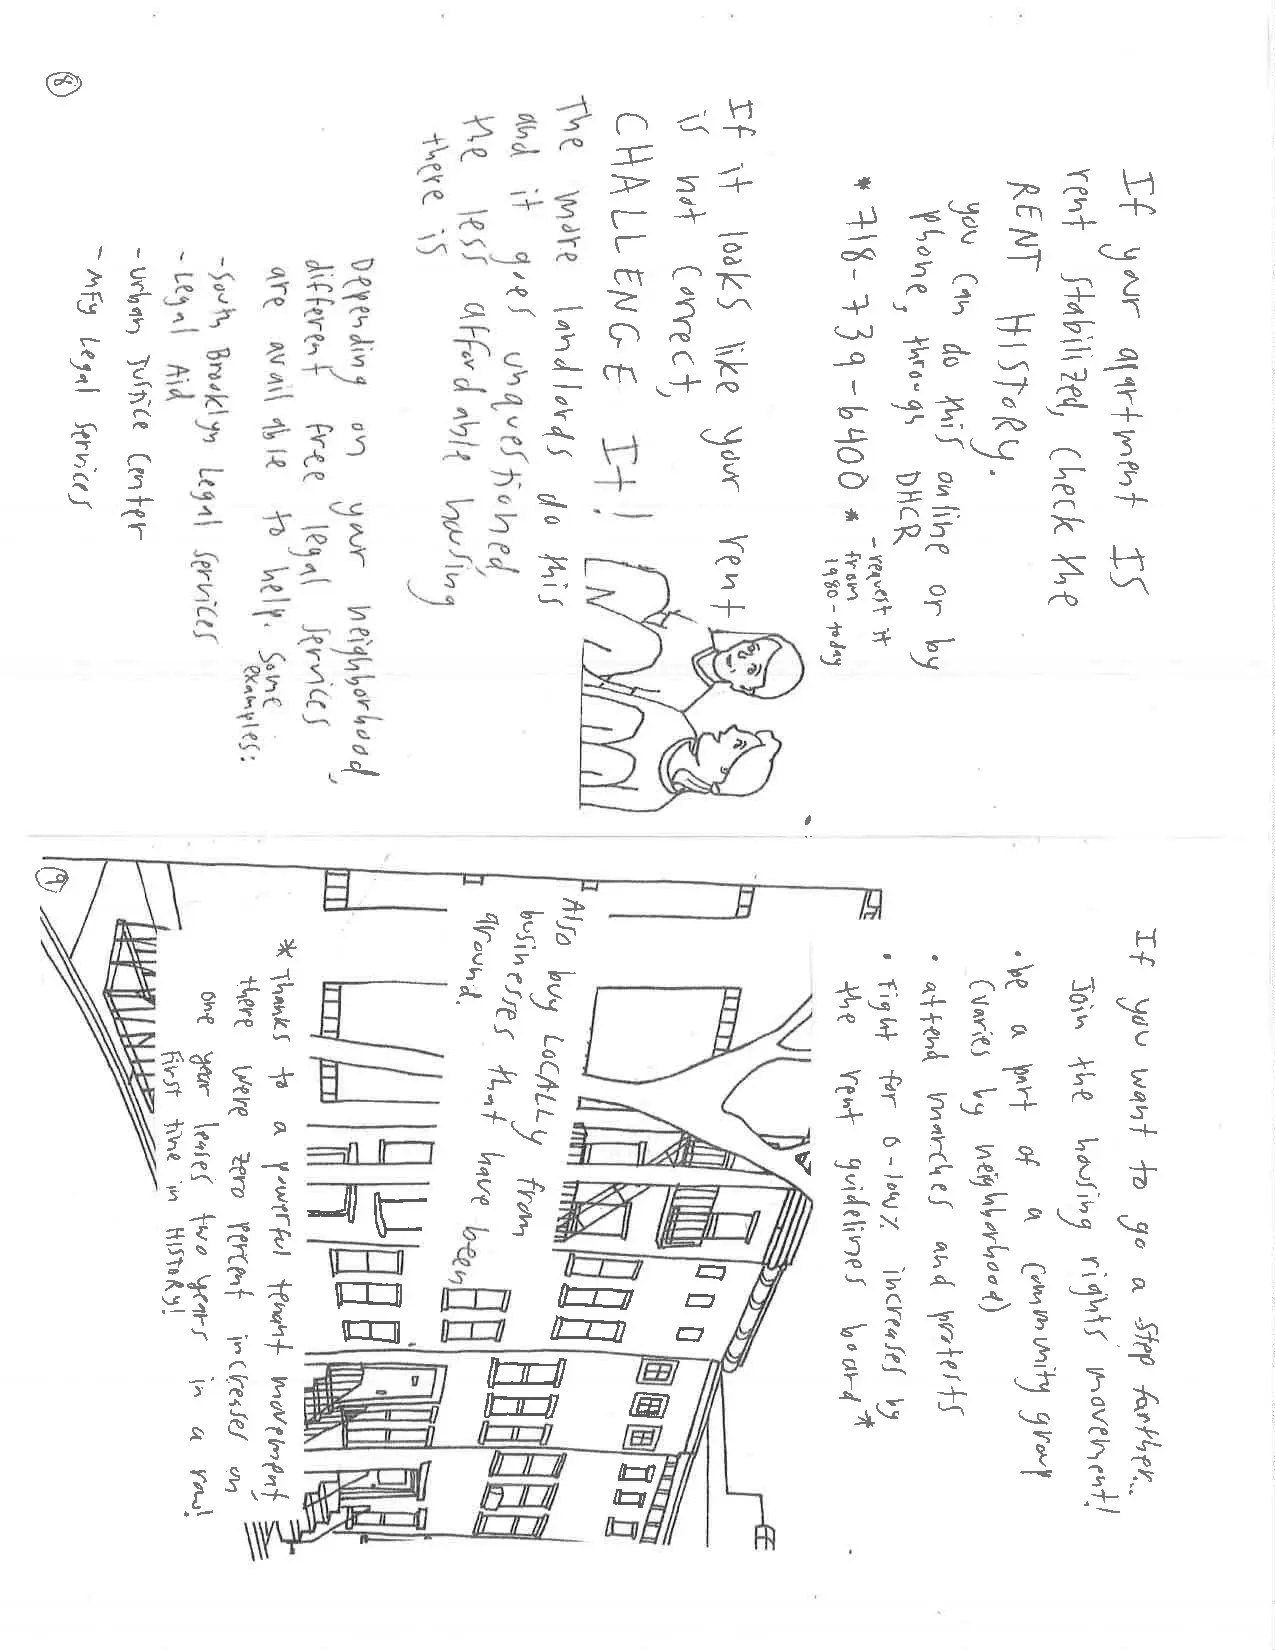 If your apartment IS
rent stabilized, check the
RENT HISTORY.
you can do this online or by
phone, through DHCR
* 718-739-6400 *
- request it
from
1980-today
If it looks like your rent
is not correct,
CHALLENGE It!
The more landlords do this
and it goes unquestioned,
the less affordable housing
there is
Depending on your neighborhood,
different free legal services
are available to help. Some
examples:
- South Brooklyn Legal Services
- Legal Aid
- Urban Justice Center
- MFY Legal Services
8
If you want to go a step further...
Join the housing rights movement!
• be a part of a community group
(varies by neighborhood)
• attend marches and protests
• Fight for 0-low% increases by
the rent guidelines board *
Also buy LOCALLY from
businesses that have been
around.
* Thanks to a powerful tenant movement,
there were zero percent increases on
one year leases two years in a row!
First time in HISTORY!
9